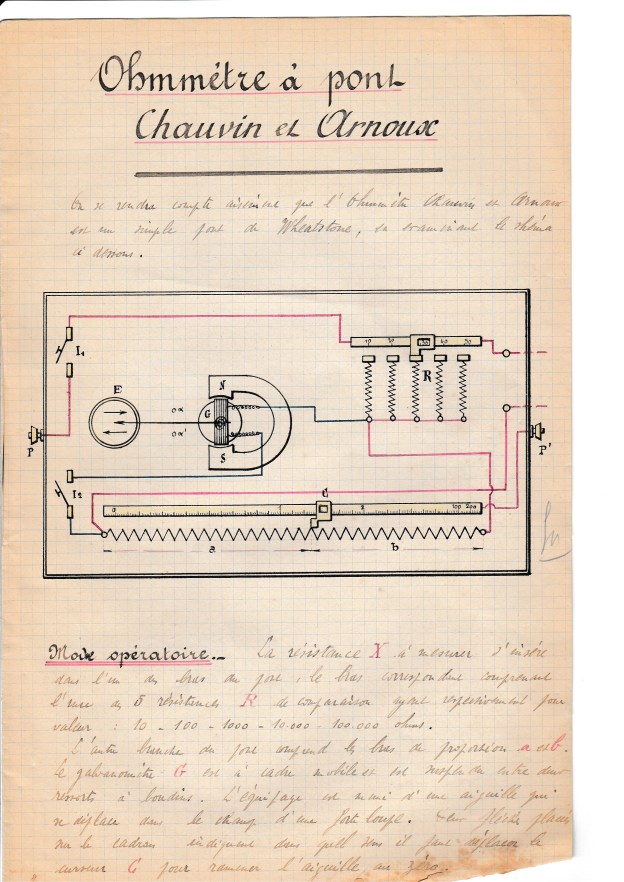 Ohmmétre à pont
Chauvin et Arnoux
On se rendra compte aisément que l'Ohmmétre Chauvin et Arnoux
est un simple pont de Wheatstone, en examinant le shéma
ci dessous.
I1
10 20 30 40 50
R
E
N
G
S
α
α'
P
P'
I2
C
0 1 2 100 200
a b
Mode opératoire._ La résistance X à mesurer s'insére
dans l'un des bras du pont, le bras correspondant comprenant
l'une des 5 résistances R de comparaison ayant respectivement pour
valeur : 10 _ 100 _ 1000 _ 10.000 _ 100.000 ohms.
L'autre branche du pont comprend les bras de proportion a et b.
Le galvanomètre G est à cadre mobile et est suspendu entre deux
ressorts à boudins. L'équipage est muni d'une aiguille qui
se déplace dans le champ d'une forte loupe. flèche placée
sur le cadran indiquent dans quel sens il faut déplacer le
curseur C pour ramener l'aiguille au zéro.